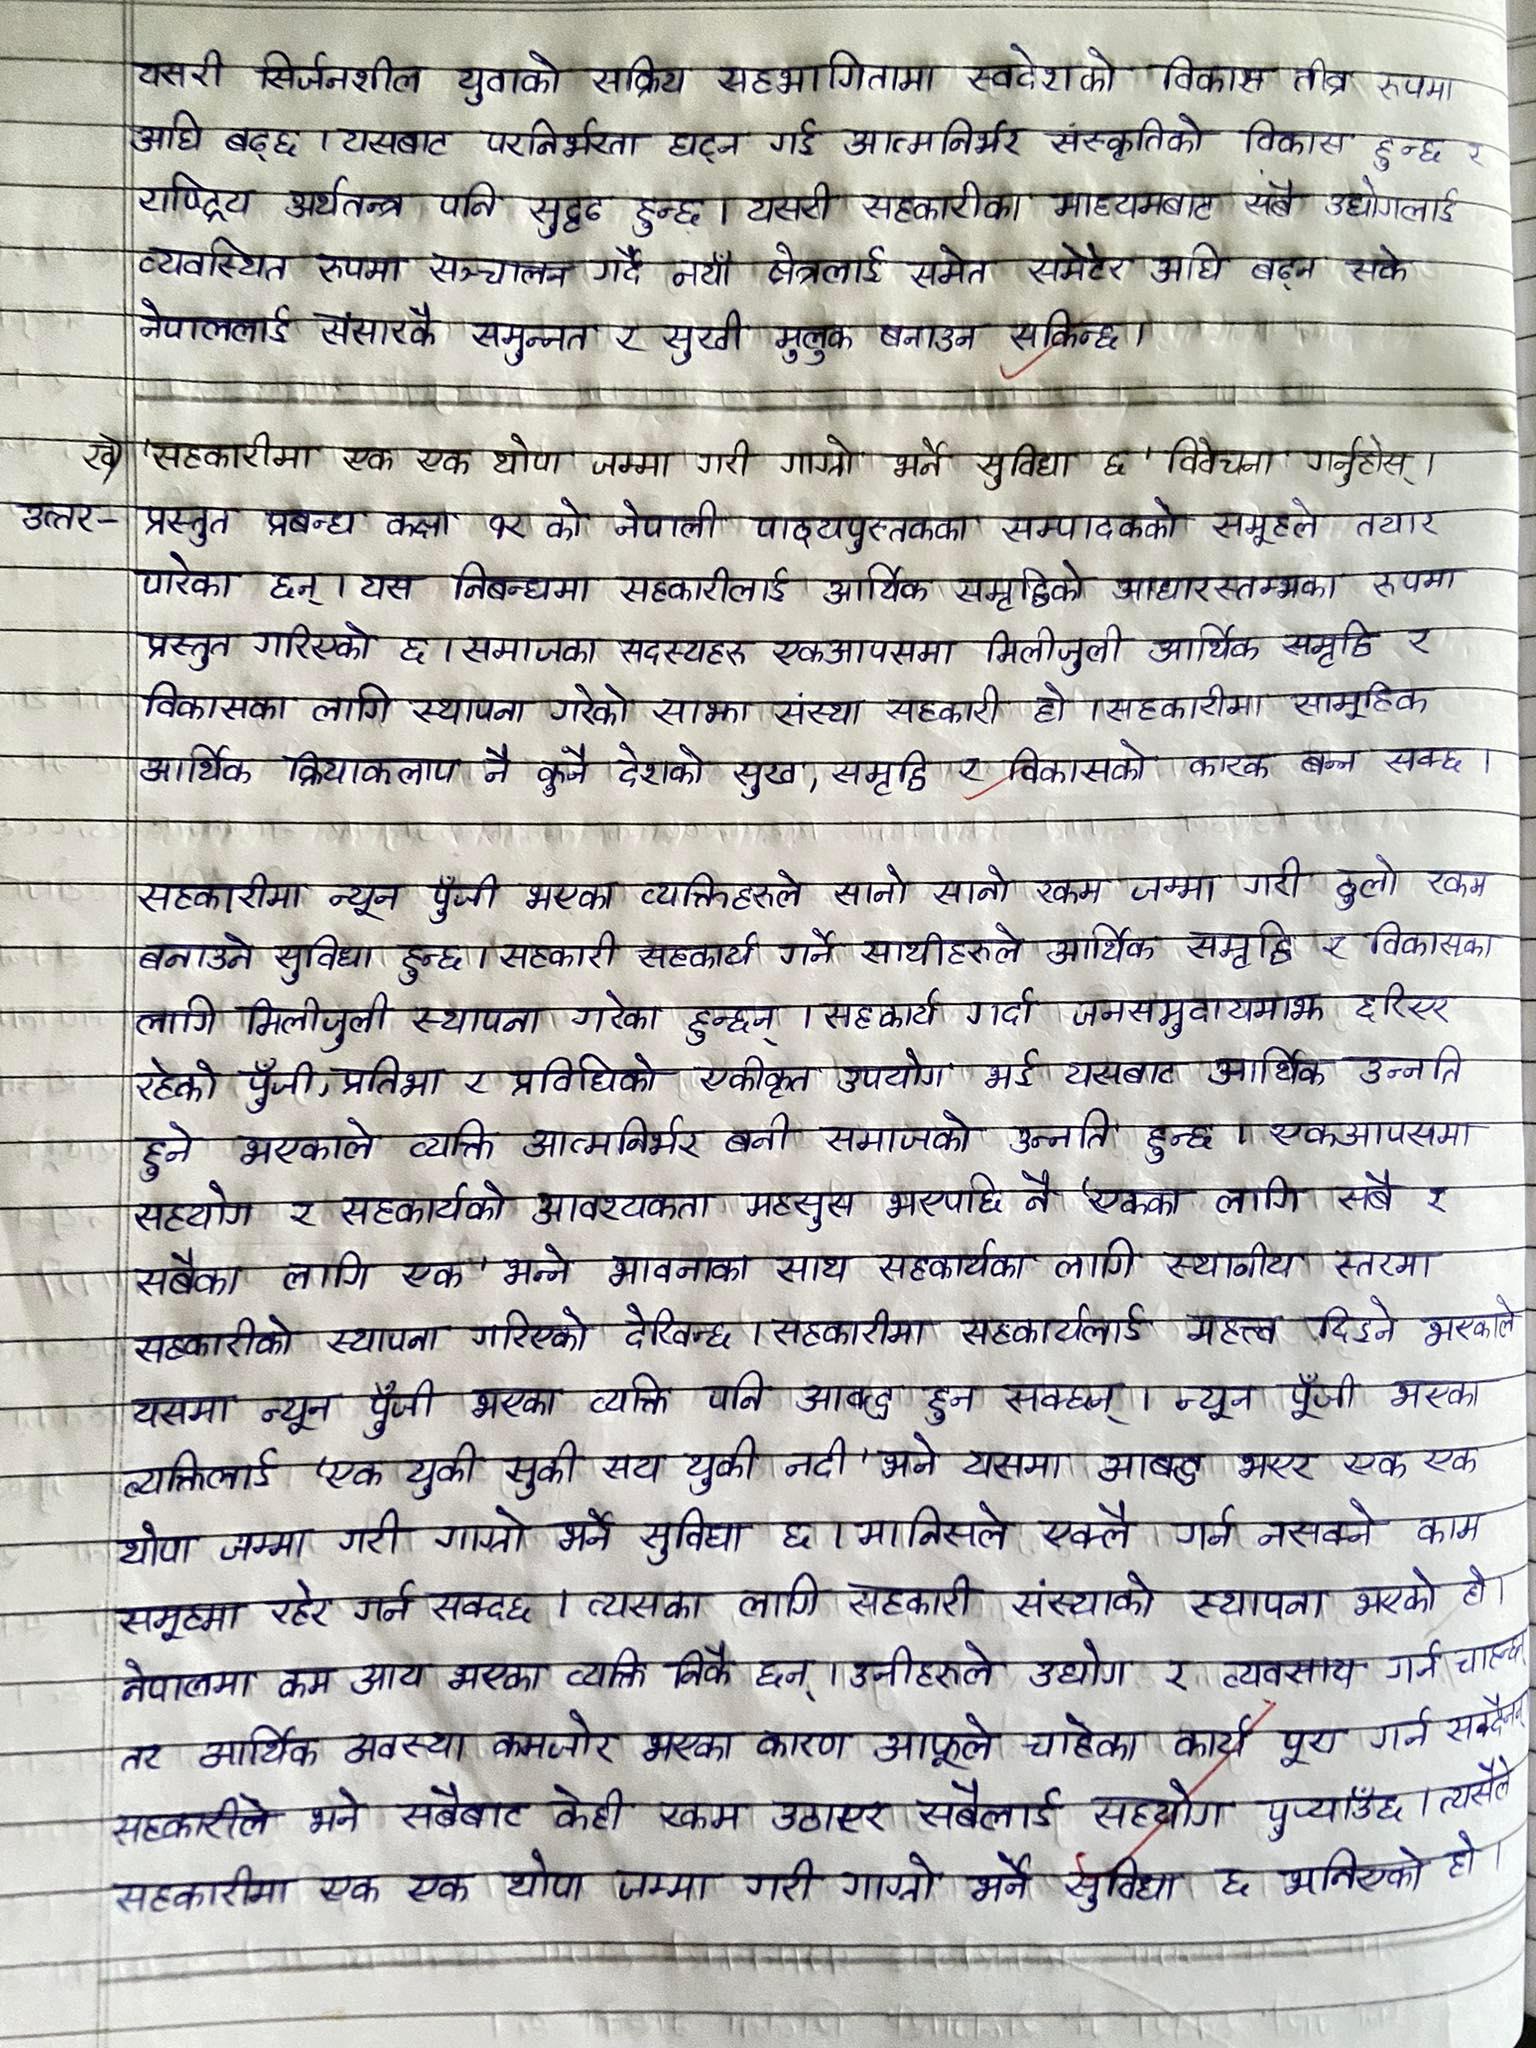 यसरी सिर्जनशील युवाको सक्रिय सहभागितामा स्वदेशको विकास तीव्र रुपमा
अघि बढ्छ । यसबाट परनिर्भरता घट्न गई आत्मनिर्भर संस्कृतिको विकास हुन्छ र
राष्ट्रिय अर्थतन्त्र पनि सुदृढ हुन्छ । यसरी सहकारीका माध्यमबाट सबै उद्योगलाई
व्यवस्थित रुपमा सञ्चालन गर्दै नयाँ क्षेत्रलाई समेत समेटेर अघि बढ्न सके
नेपाललाई संसारकै समुन्नत र सुखी मुलुक बनाउन सकिन्छ ।
ख) 'सहकारीमा एक एक थोपा जम्मा गरी गाग्रो भर्ने सुविधा छ' विवेचना गर्नुहोस् ।
उत्तर- प्रस्तुत प्रबन्ध कक्षा १२ को नेपाली पाठ्यपुस्तकका सम्पादकको समूहले तयार
पारेका छन् । यस निबन्धमा सहकारीलाई आर्थिक समृद्धिको आधारस्तम्भका रुपमा
प्रस्तुत गरिएको छ । समाजका सदस्यहरु एकआपसमा मिलीजुली आर्थिक समृद्धि र
विकासका लागि स्थापना गरेको साझा संस्था सहकारी हो । सहकारीमा सामूहिक
आर्थिक क्रियाकलाप नै कुनै देशको सुख, समृद्धि र विकासको कारक बन्न सक्छ ।
सहकारीमा न्यून पुँजी भएका व्यक्तिहरुले सानो सानो रकम जम्मा गरी ठुलो रकम
बनाउने सुविधा हुन्छ । सहकारी सहकार्य गर्ने साथीहरुले आर्थिक समृद्धि र विकासका
लागि मिलीजुली स्थापना गरेका हुन्छन् । सहकार्य गर्दा जनसमुदायमाझ छरिएर
रहेको पुँजी, प्रतिभा र प्रविधिको एकीकृत उपयोग भई यसबाट आर्थिक उन्नति
हुने भएकाले व्यक्ति आत्मनिर्भर बनी समाजको उन्नति हुन्छ । एकआपसमा
सहयोग र सहकार्यको आवश्यकता महसुस भएपछि नै 'एकका लागि सबै र
सबैका लागि एक' भन्ने भावनाका साथ सहकार्यका लागि स्थानीय स्तरमा
सहकारीको स्थापना गरिएको देखिन्छ । सहकारीमा सहकार्यलाई महत्त्व दिइने भएकाले
यसमा न्यून पुँजी भएका व्यक्ति पनि आबद्ध हुन सक्छन् । न्यून पुँजी भएका
व्यक्तिलाई 'एक थुकी सुकी सय थुकी नदी' भने यसमा आबद्ध भएर एक एक
थोपा जम्मा गरी गाग्रो भर्ने सुविधा छ । मानिसले एक्लै गर्न नसक्ने काम
समूहमा रहेर गर्न सक्दछ । त्यसका लागि सहकारी संस्थाको स्थापना भएको हो ।
नेपालमा कम आय भएका व्यक्ति निकै छन् । उनीहरुले उद्योग र व्यवसाय गर्न चाहन्छन्
तर आर्थिक अवस्था कमजोर भएका कारण आफूले चाहेका कार्य पूरा गर्न सक्दैनन्
सहकारीले भने सबैबाट केही रकम उठाएर सबैलाई सहयोग पुर्‍याउँछ । त्यसैले
सहकारीमा एक एक थोपा जम्मा गरी गाग्रो भर्ने सुविधा छ भनिएको हो ।